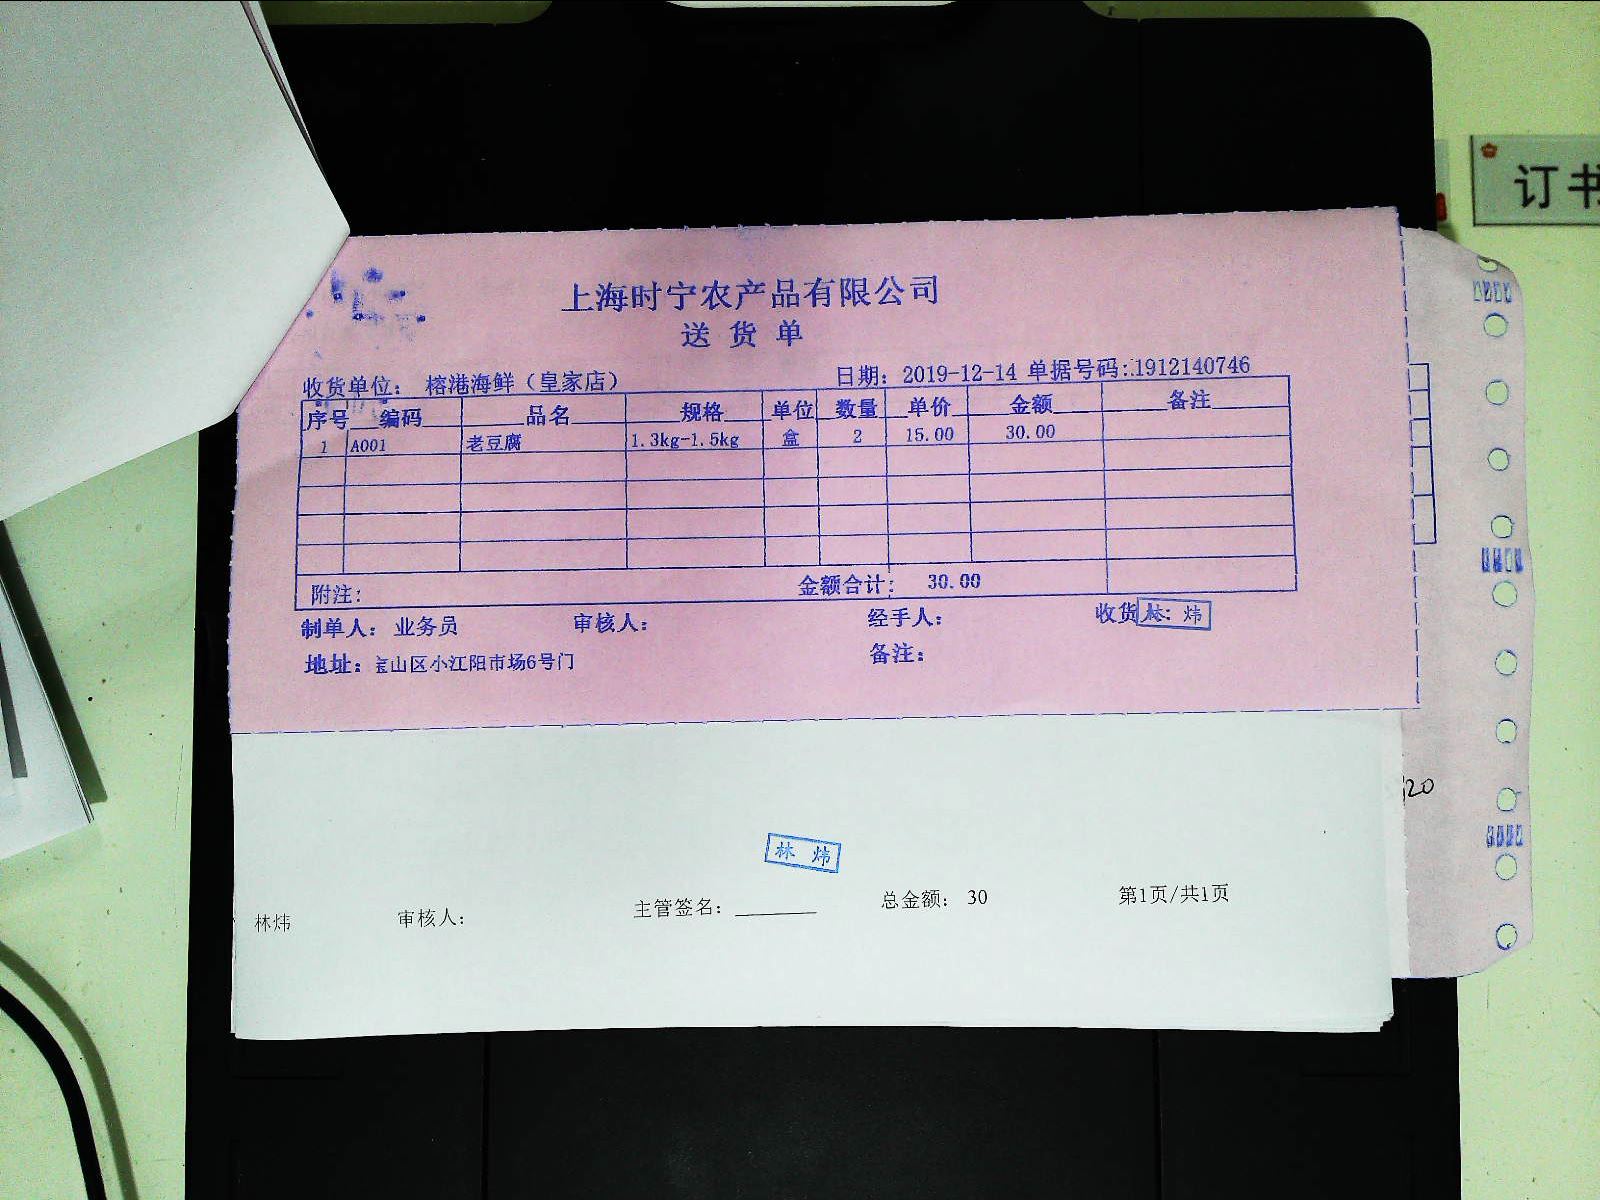 订书
上海时宁农产品有限公司
送货单
收货单位: 榕港海鲜（皇家店） 日期: 2019-12-14 单据号码:1912140746
序号 编码 品名 规格 单位 数量 单价 金额 备注
1 A001 老豆腐 1.3kg-1.5kg 盒 2 15.00 30.00
附注: 金额合计: 30.00
制单人: 业务员 审核人: 经手人: 收货人: 林 炜
地址: 宝山区小江阳市场6号门 备注:
林 炜
林炜 审核人: 主管签名: 总金额: 30 第1页/共1页